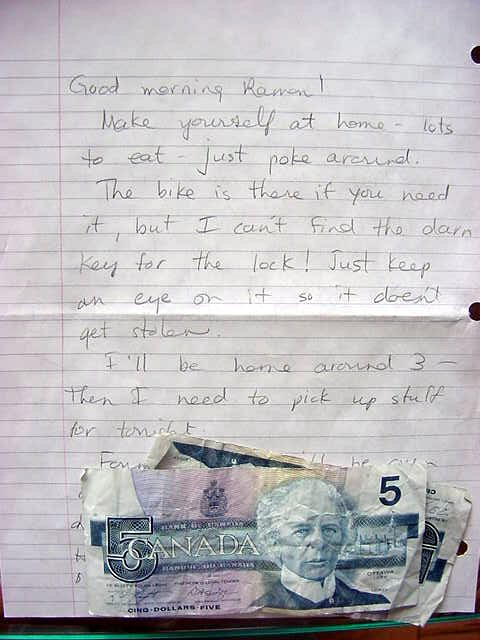 Good morning Ramon!
Make yourself at home - lots
to eat - just poke around.
The bike is there if you need
it, but I can't find the darn
key for the lock! Just keep
an eye on it so it doesn't
get stolen.
I'll be home around 3 -
Then I need to pick up stuff
for tonight.
be
5
BANK OF CANADA
5
CANADA
BANQUE DU CANADA
OTTAWA
CINQ•DOLLARS•FIVE